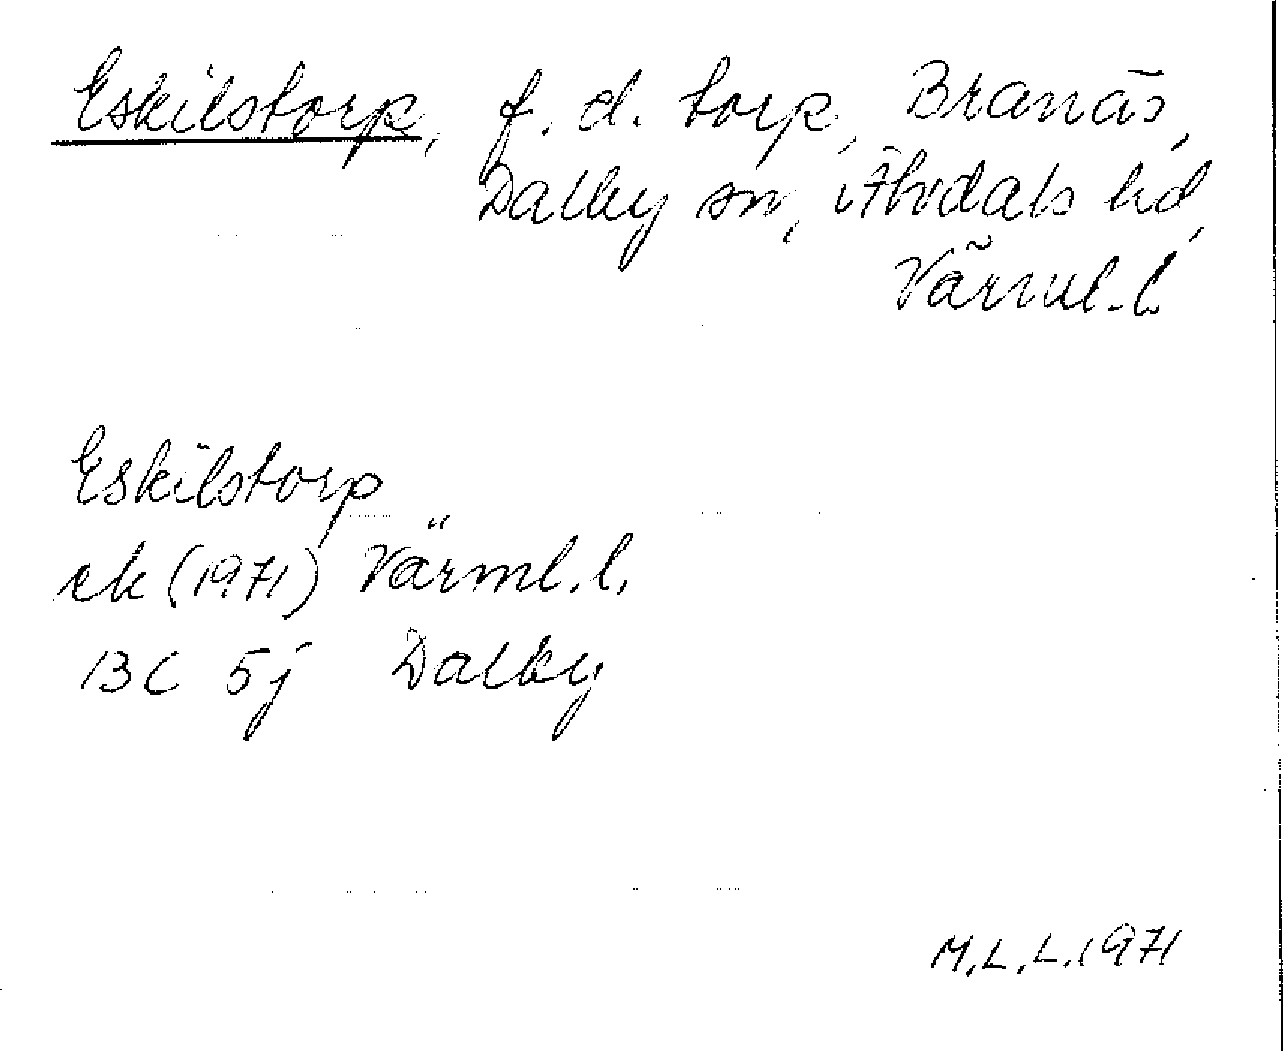 Eskilstorp, f. d. torp, Branäs,
Dalby sn, Älvdals hd,
Värml. l.
Eskilstorp
ek (1971) Värml. l.
13C 5j Dalby
M.L.L. 1971